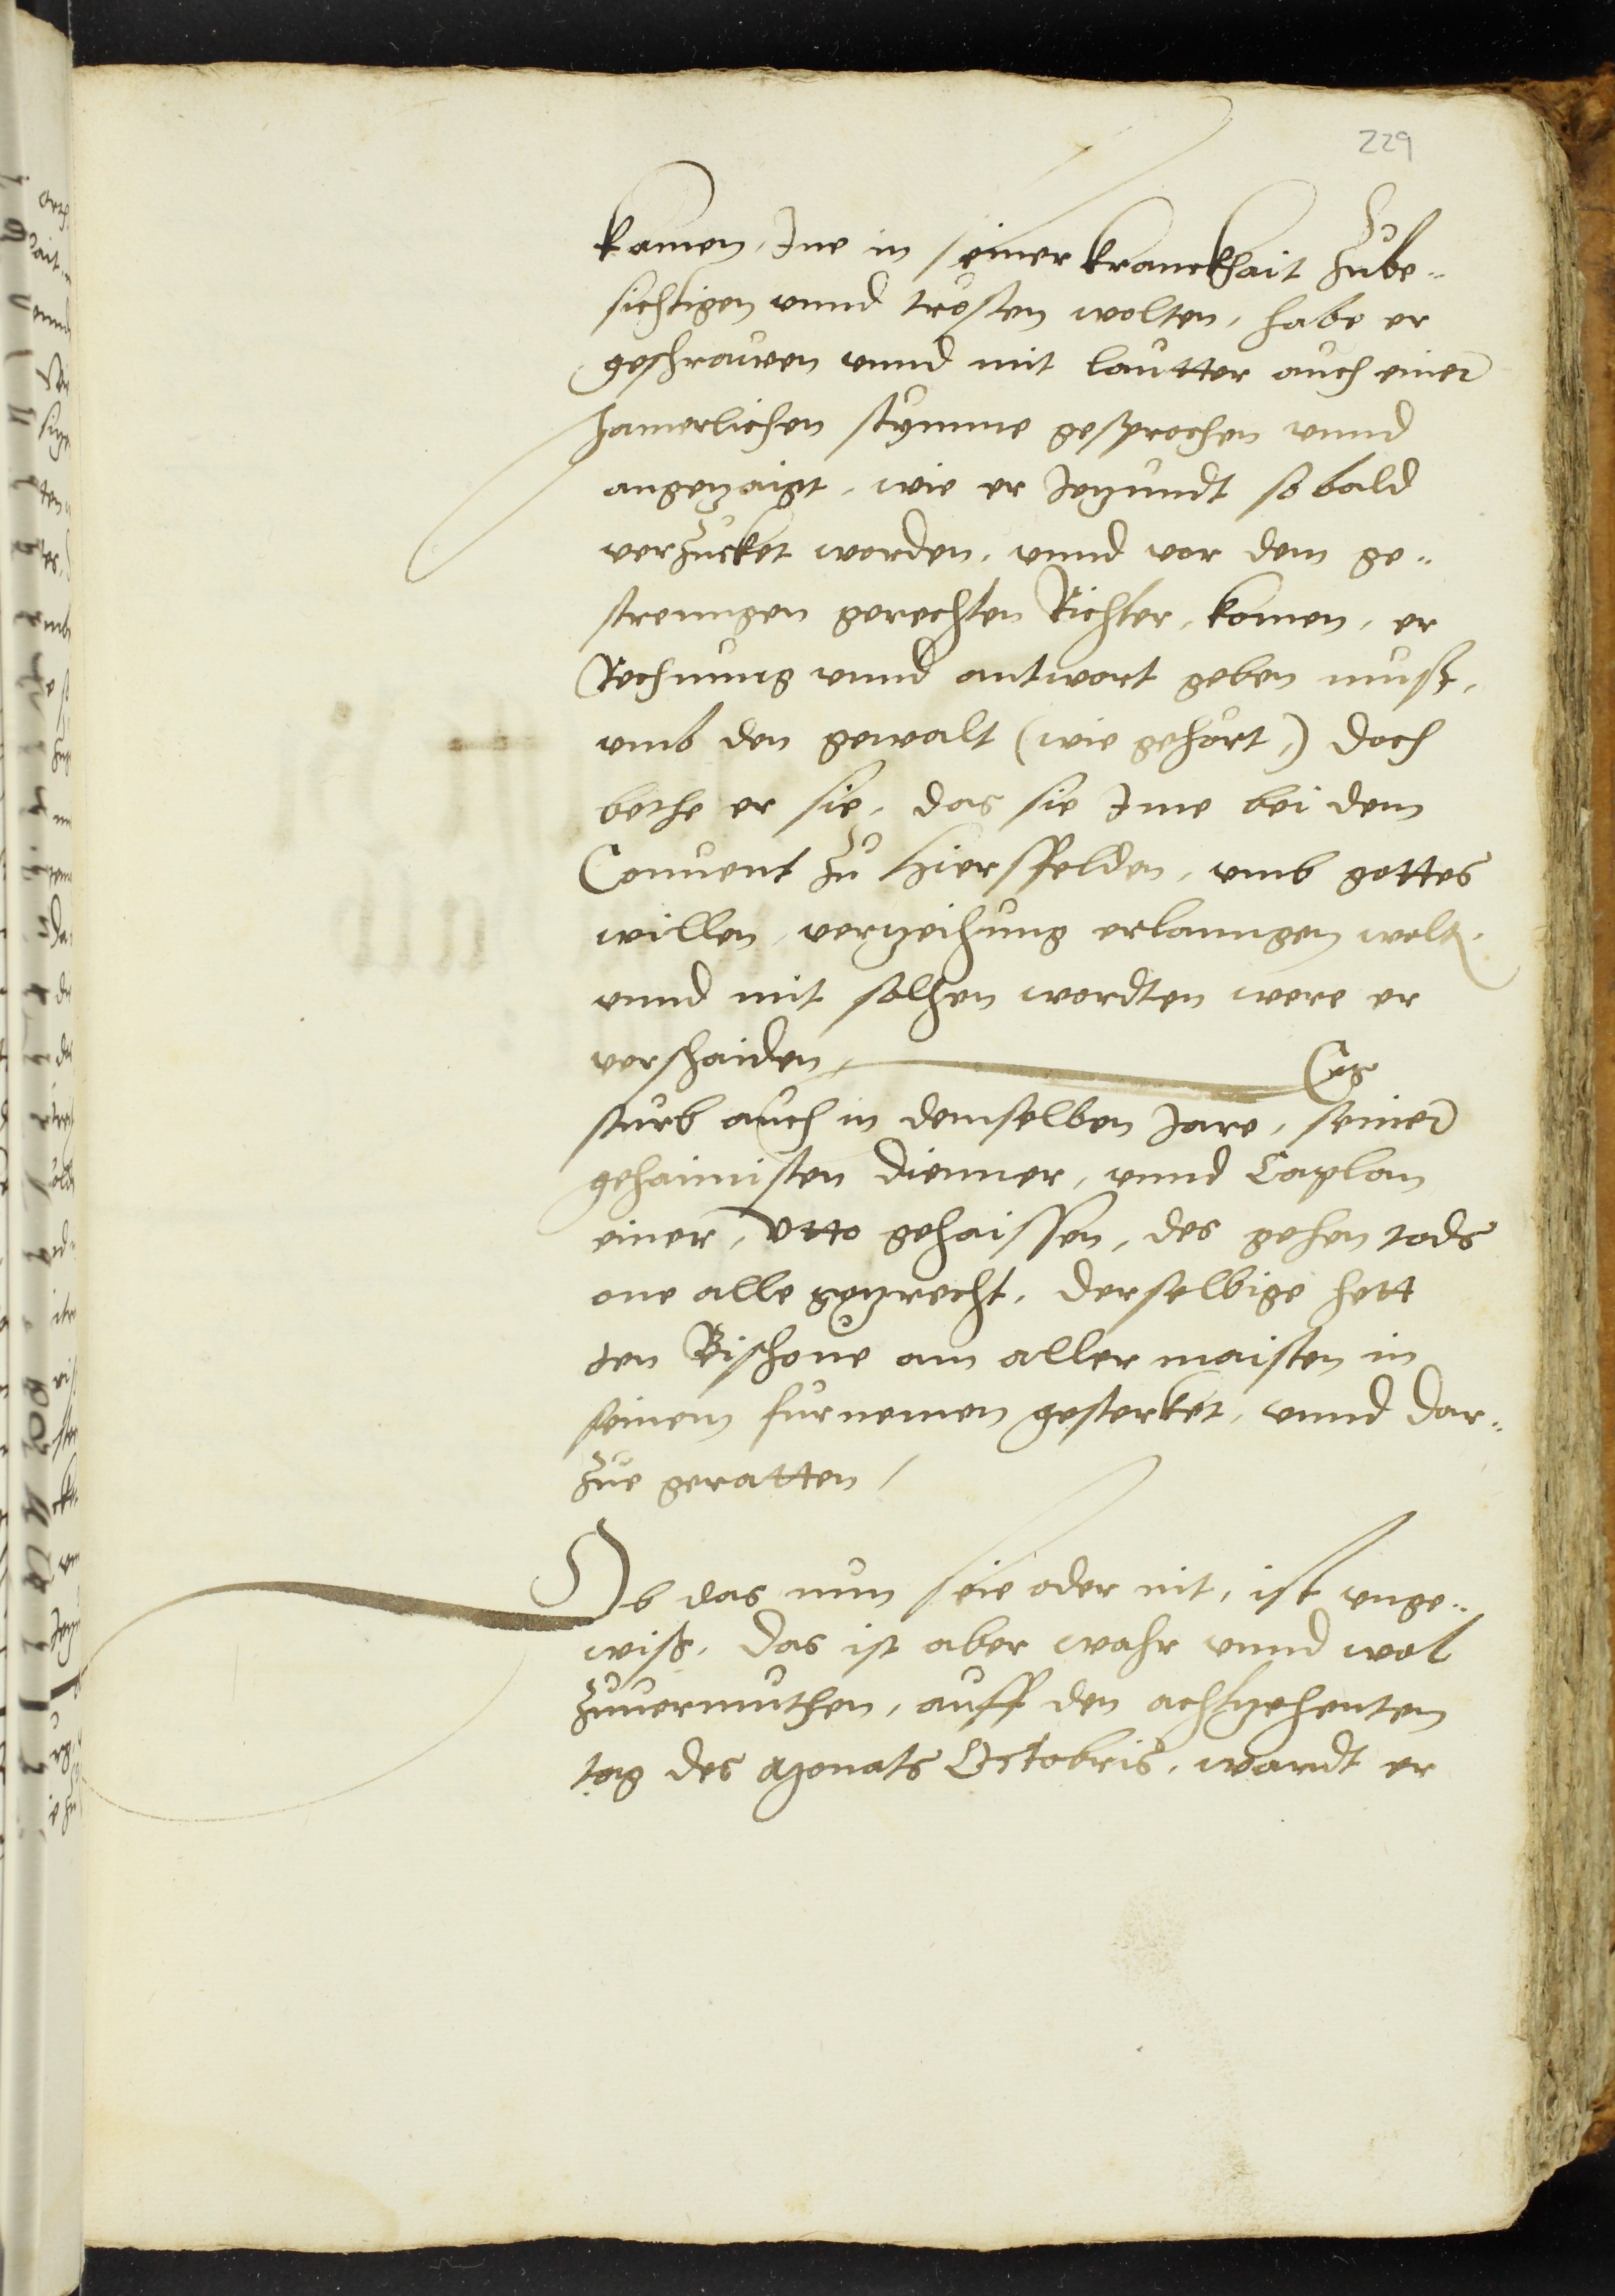 229
kamen, Ine in seiner kranckhait zube¬
sichtigen vnnd trösten wolten, habe er
geschrauwen vnnd mit lautter auch einer
Jamerlichen stymme gesprochen vnnd
angezaigt, wie er Jezundt so bald
verzucket worden, vnnd vor dem ge¬
strenngen gerechten Richter, komen, er
Rechnung vnnd antwort geben musst,
vmb den gewalt (wie gehört,) doch
bethe er sie, das sie Ime bei dem
Conuent zu Hiersfelden, vmb gottes
willen, verzeihung erlanngen welt,
vnnd mit solhen wordten were er
verschaiden, Es
sturb auch in demselben Jare, seiner
gehaimisten dienner, vnnd Caplan
einer, Vtto gehaissen, des gehen tods
one alle gozrecht, derselbige hett
den Bischoue am aller maisten in
seinem furnemen gesterket, vnnd dar¬
zue geratten,
Ob das nun seie oder nit, ist vnge¬
wiß, das ist aber wahr vnnd wol
zuuermuthen, auff den achtzehenten
tag des Monats Octobris, wardt er